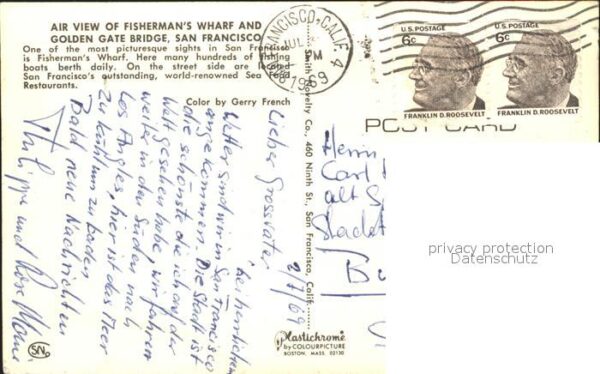 AIR VIEW OF FISHERMAN'S WHARF AND
GOLDEN GATE BRIDGE, SAN FRANCISCO
One of the most picturesque sights in San Francisco
is Fisherman's Wharf. Here many hundreds of fishing
boats berth daily. On the street side are located
San Francisco's outstanding, world-renowned Sea Food
Restaurants.
Color by Gerry French
FRANCISCO, CALIF.
JUL
PM
1969
U.S. POSTAGE
6c
FRANKLIN D. ROOSEVELT
U.S. POSTAGE
6c
FRANKLIN D. ROOSEVELT
POST CARD
Smith Novelty Co., 460 Ninth St., San Francisco, Calif.
2/7/69
Lieber Grossvater
bei herrlichem
Wetter sind wir in San Francisco
angekommen. Die Stadt ist
die schönste die ich auf der
Welt gesehen habe. wir fahren
weiter in den Süden nach
Los Angles, hier ist das Meer
zu kühl um zu baden
Bald neue Nachrichten
Philippe und Rose Marie
Herrn
Carl
alt
Stadt
privacy protection
Datenschutz
SN
Plastichrome
by COLOURPICTURE
BOSTON, MASS. 02130